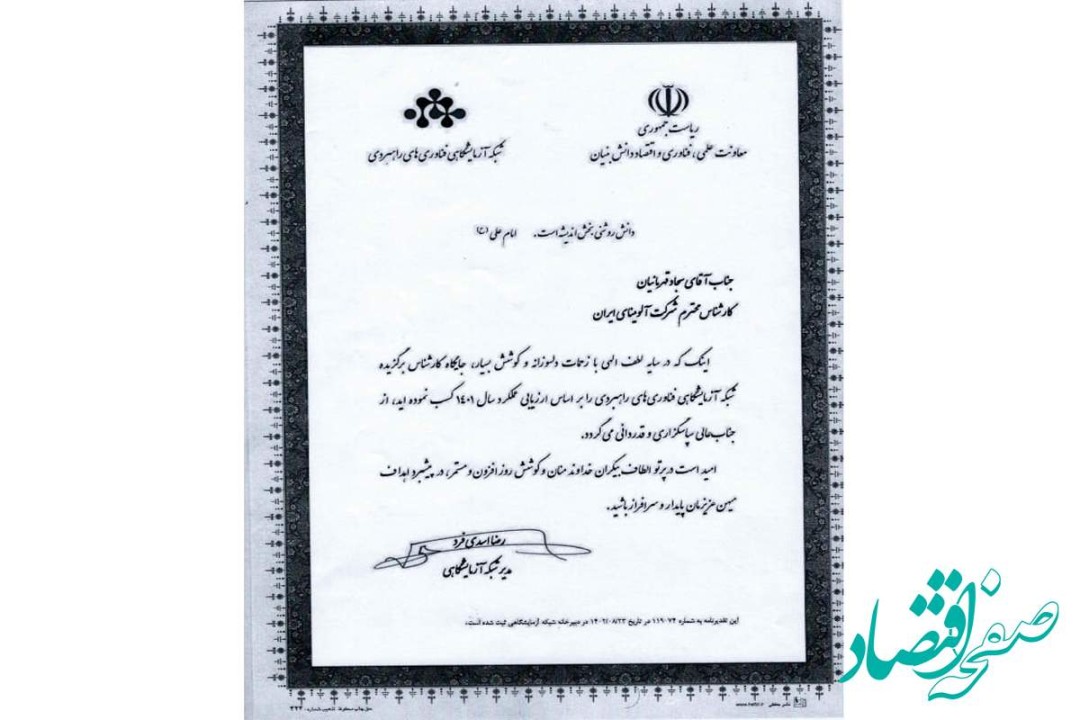 ریاست جمهوری
معاونت علمی، فناوری و اقتصاد دانش بنیان
شبکه آزمایشگاهی فناوری‌های راهبردی
دانش روشنی بخش اندیشه است. امام علی (ع)
جناب آقای سجاد قهرمانیان
کارشناس محترم شرکت آلومینای ایران
اینک که در سایه لطف الهی با زحمات دلسوزانه و کوشش بسیار، جایگاه کارشناس برگزیده
شبکه آزمایشگاهی فناوری‌های راهبردی را بر اساس ارزیابی عملکرد سال ۱۴۰۱ کسب نموده اید، از
جناب‌عالی سپاسگزاری و قدردانی می گردد.
امید است در پرتو الطاف بیکران خداوند منان و کوشش روز افزون و مستمر، در پیشبرد اهداف
میهن عزیزمان پایدار و سرافراز باشید.
رضا اسدی فرد
مدیر شبکه آزمایشگاهی
این تقدیرنامه به شماره ۱۱۹۰۷۴ در تاریخ ۱۴۰۲/۰۸/۲۳ در دبیرخانه شبکه آزمایشگاهی ثبت شده است.
صفحه اقتصاد